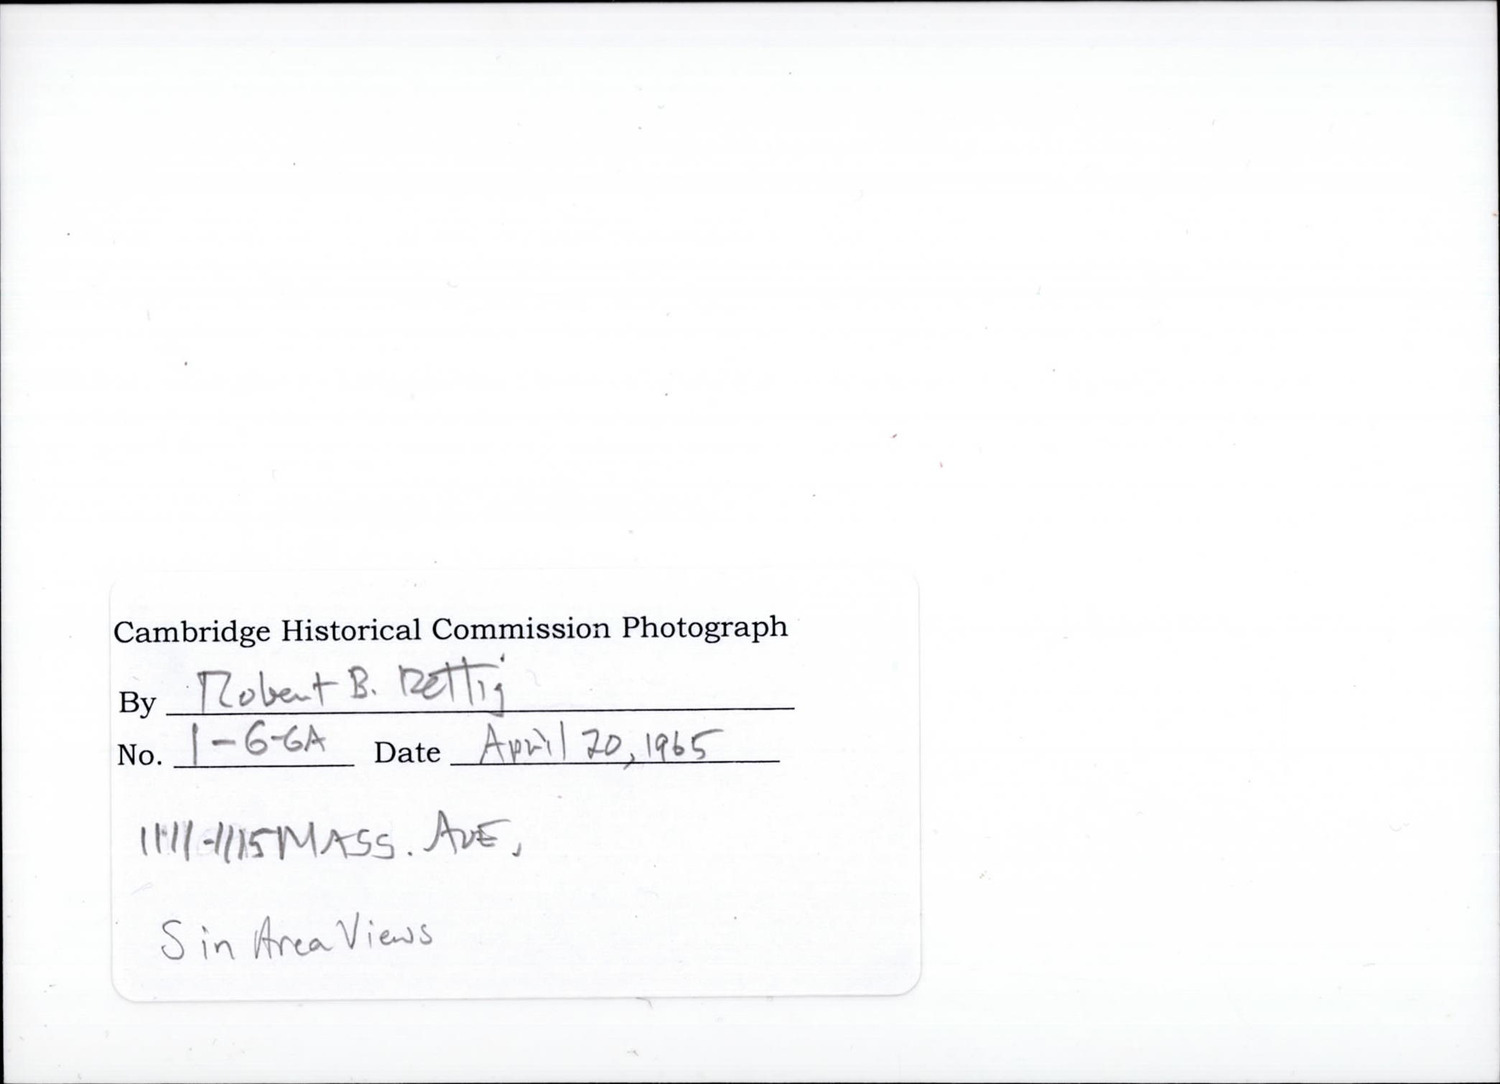 Cambridge Historical Commission Photograph
By Robert B. Rettig
No. 1-6-6A Date April 20, 1965
1111-1115 MASS. AVE,
S in Area Views